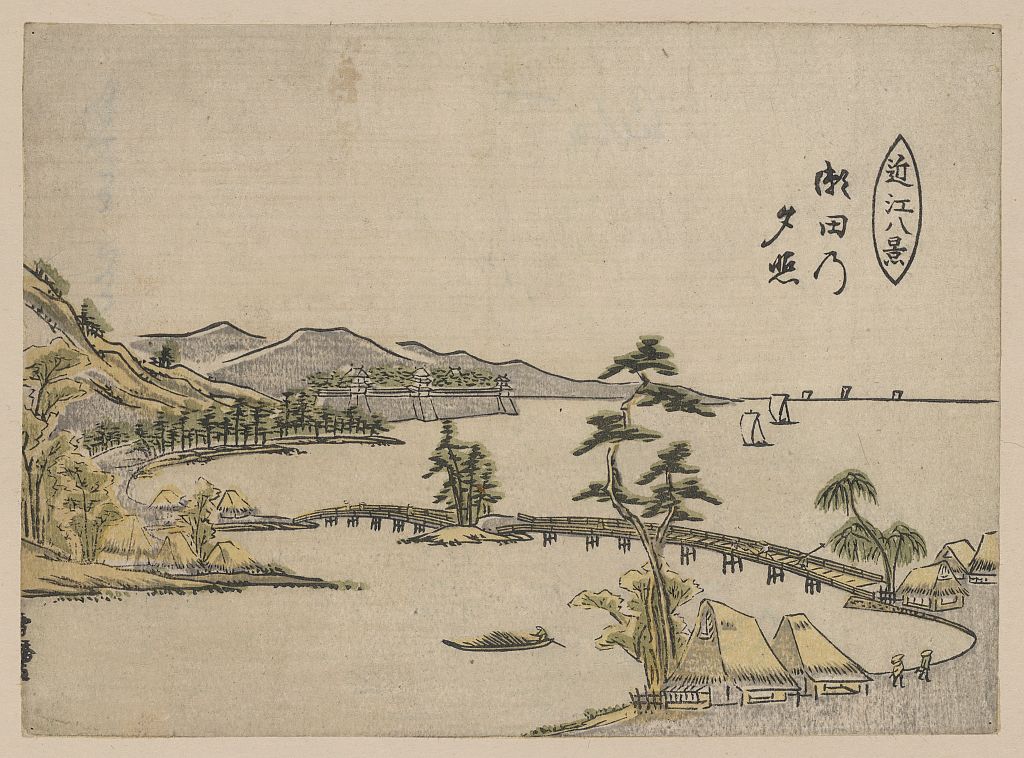 近江八景
瀬田乃
夕照